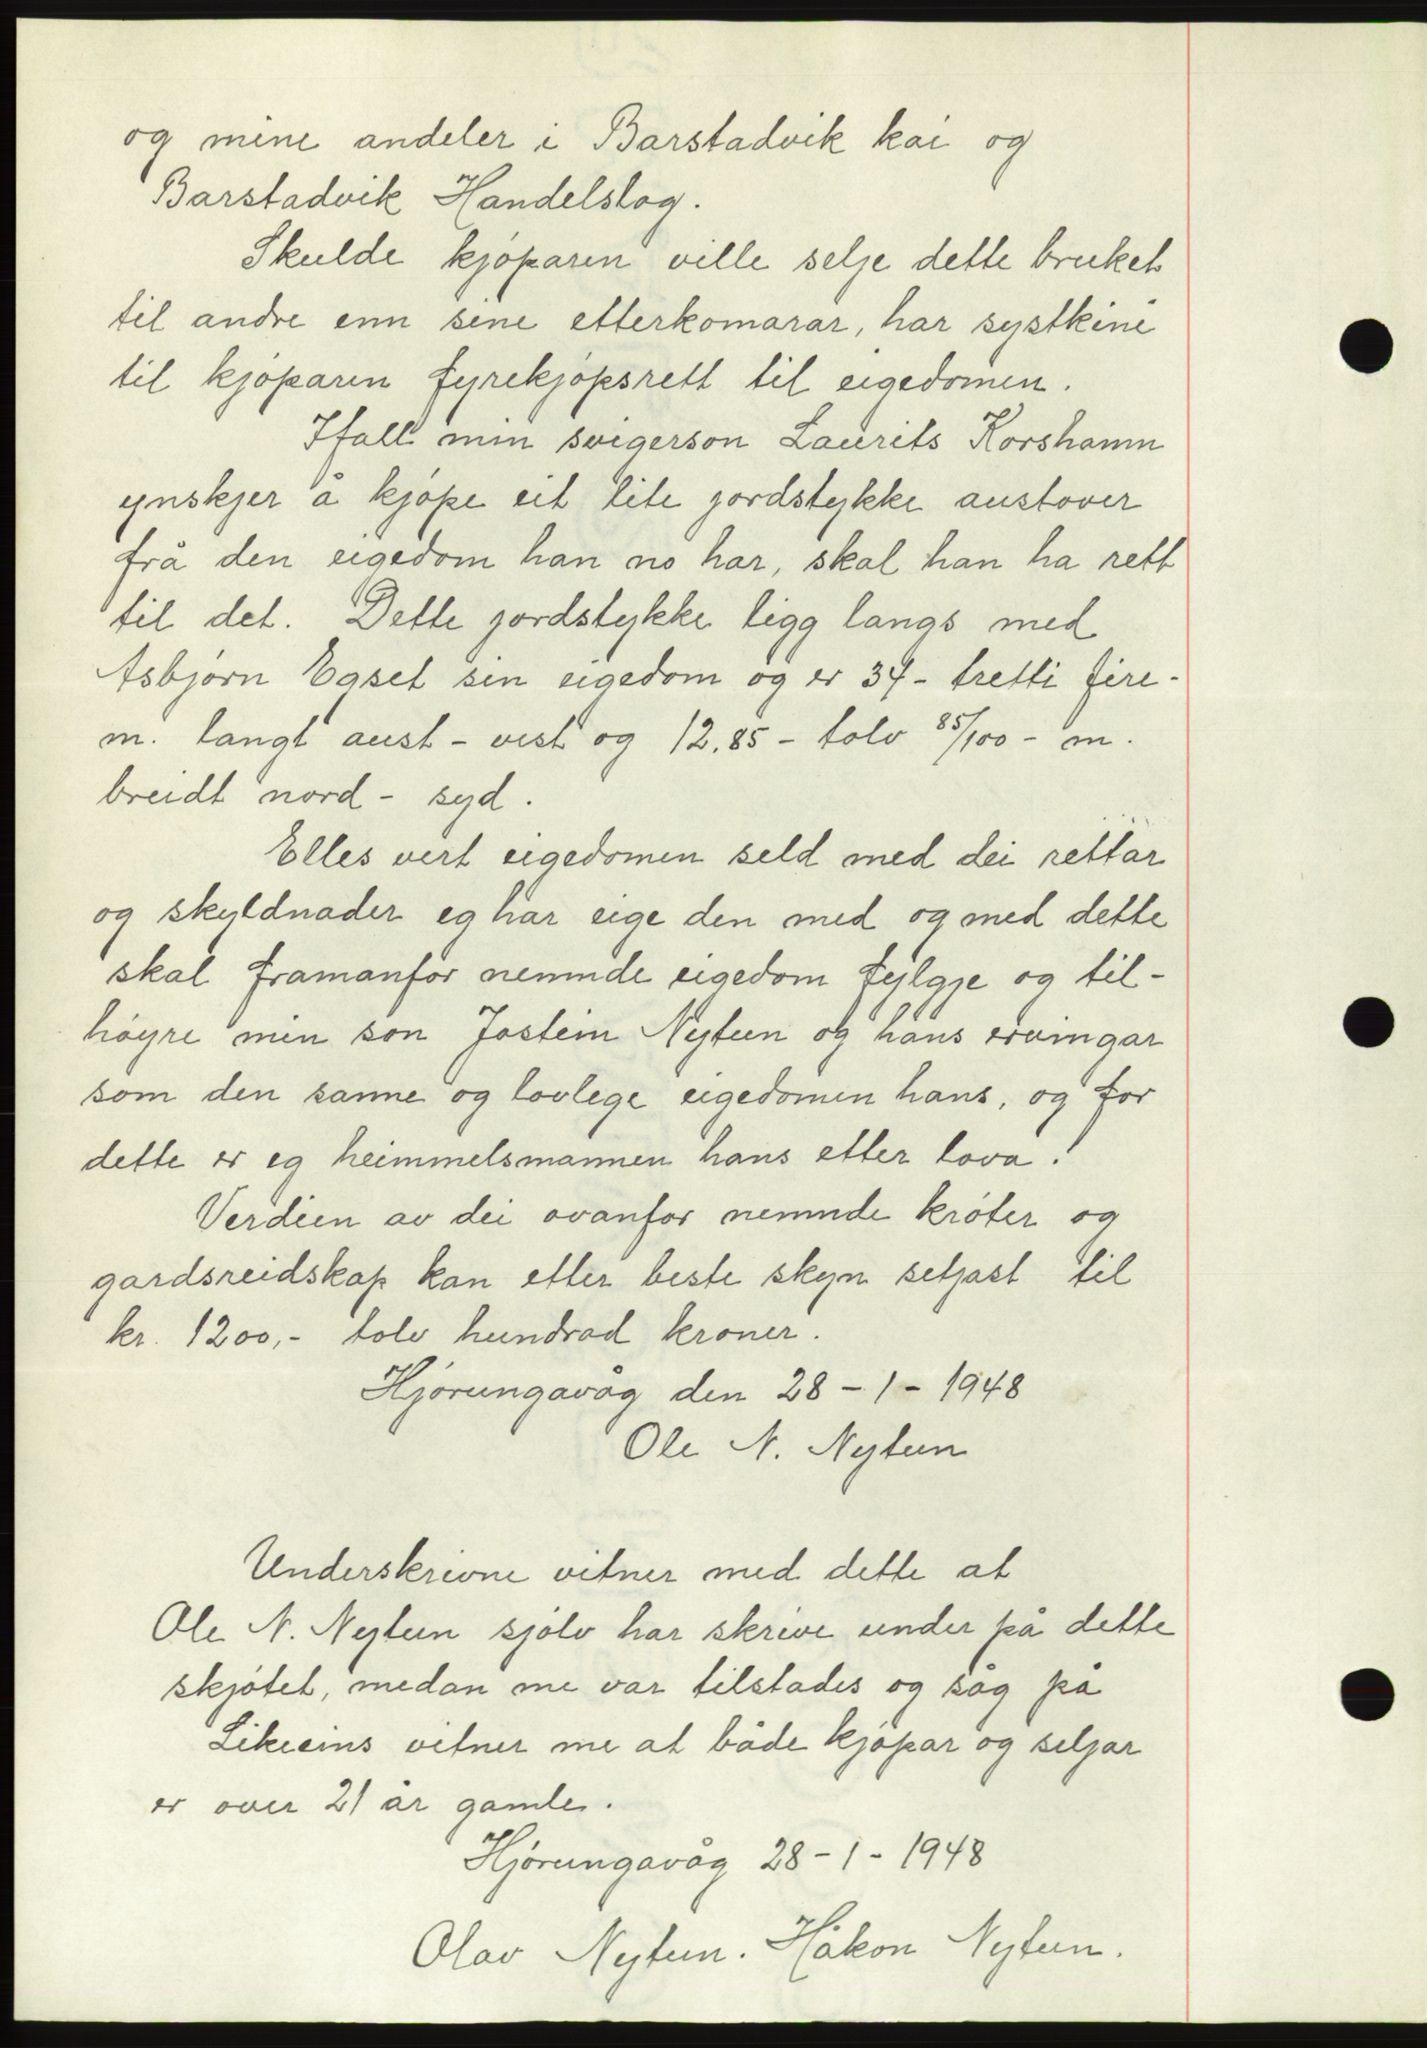 og mine andeler i Barstadvik kai og
Barstadvik Handelslag.
Skulde kjøparen ville selje dette bruket
til andre enn sine etterkomarar, har systkine
til kjøparen fyrekjøpsrett til eigedomen.
Ifall min svigerson Laurits Korshamn
ynskjer å kjøpe eit lite jordstykke austover
frå den eigedom han no har, skal han ha rett
til det. Dette jordstykke ligg langs med
Asbjørn Egset sin eigedom og er 34 - tretti fire -
m. langt aust - vest og 12,85 - tolv 85/100 - m.
breidt nord - syd.
Elles vert eigedomen seld med dei rettar
og skyldnader eg har eige den med og med dette
skal framanfor nemnde eigedom fylgje og til-
høyre min son Jostein Nytun og hans ervingar
som den sanne og lovlege eigedomen hans, og for
dette er eg heimmelsmannen hans etter lova.
Verdien av dei ovanfor nemnde krøter og
gardsreidskap kan etter beste skyn setjast til
kr. 1200,- tolv hundrad kroner.
Hjørungavåg den 28 - 1 - 1948
Ole N. Nytun
Underskrivne vitner med dette at
Ole N. Nytun sjølv har skrive under på dette
skjøtet, medan me var tilstades og såg på
Likeeins vitner me at både kjøpar og seljar
er over 21 år gamle.
Hjørungavåg 28 - 1 - 1948
Olav Nytun. Håkon Nytun.